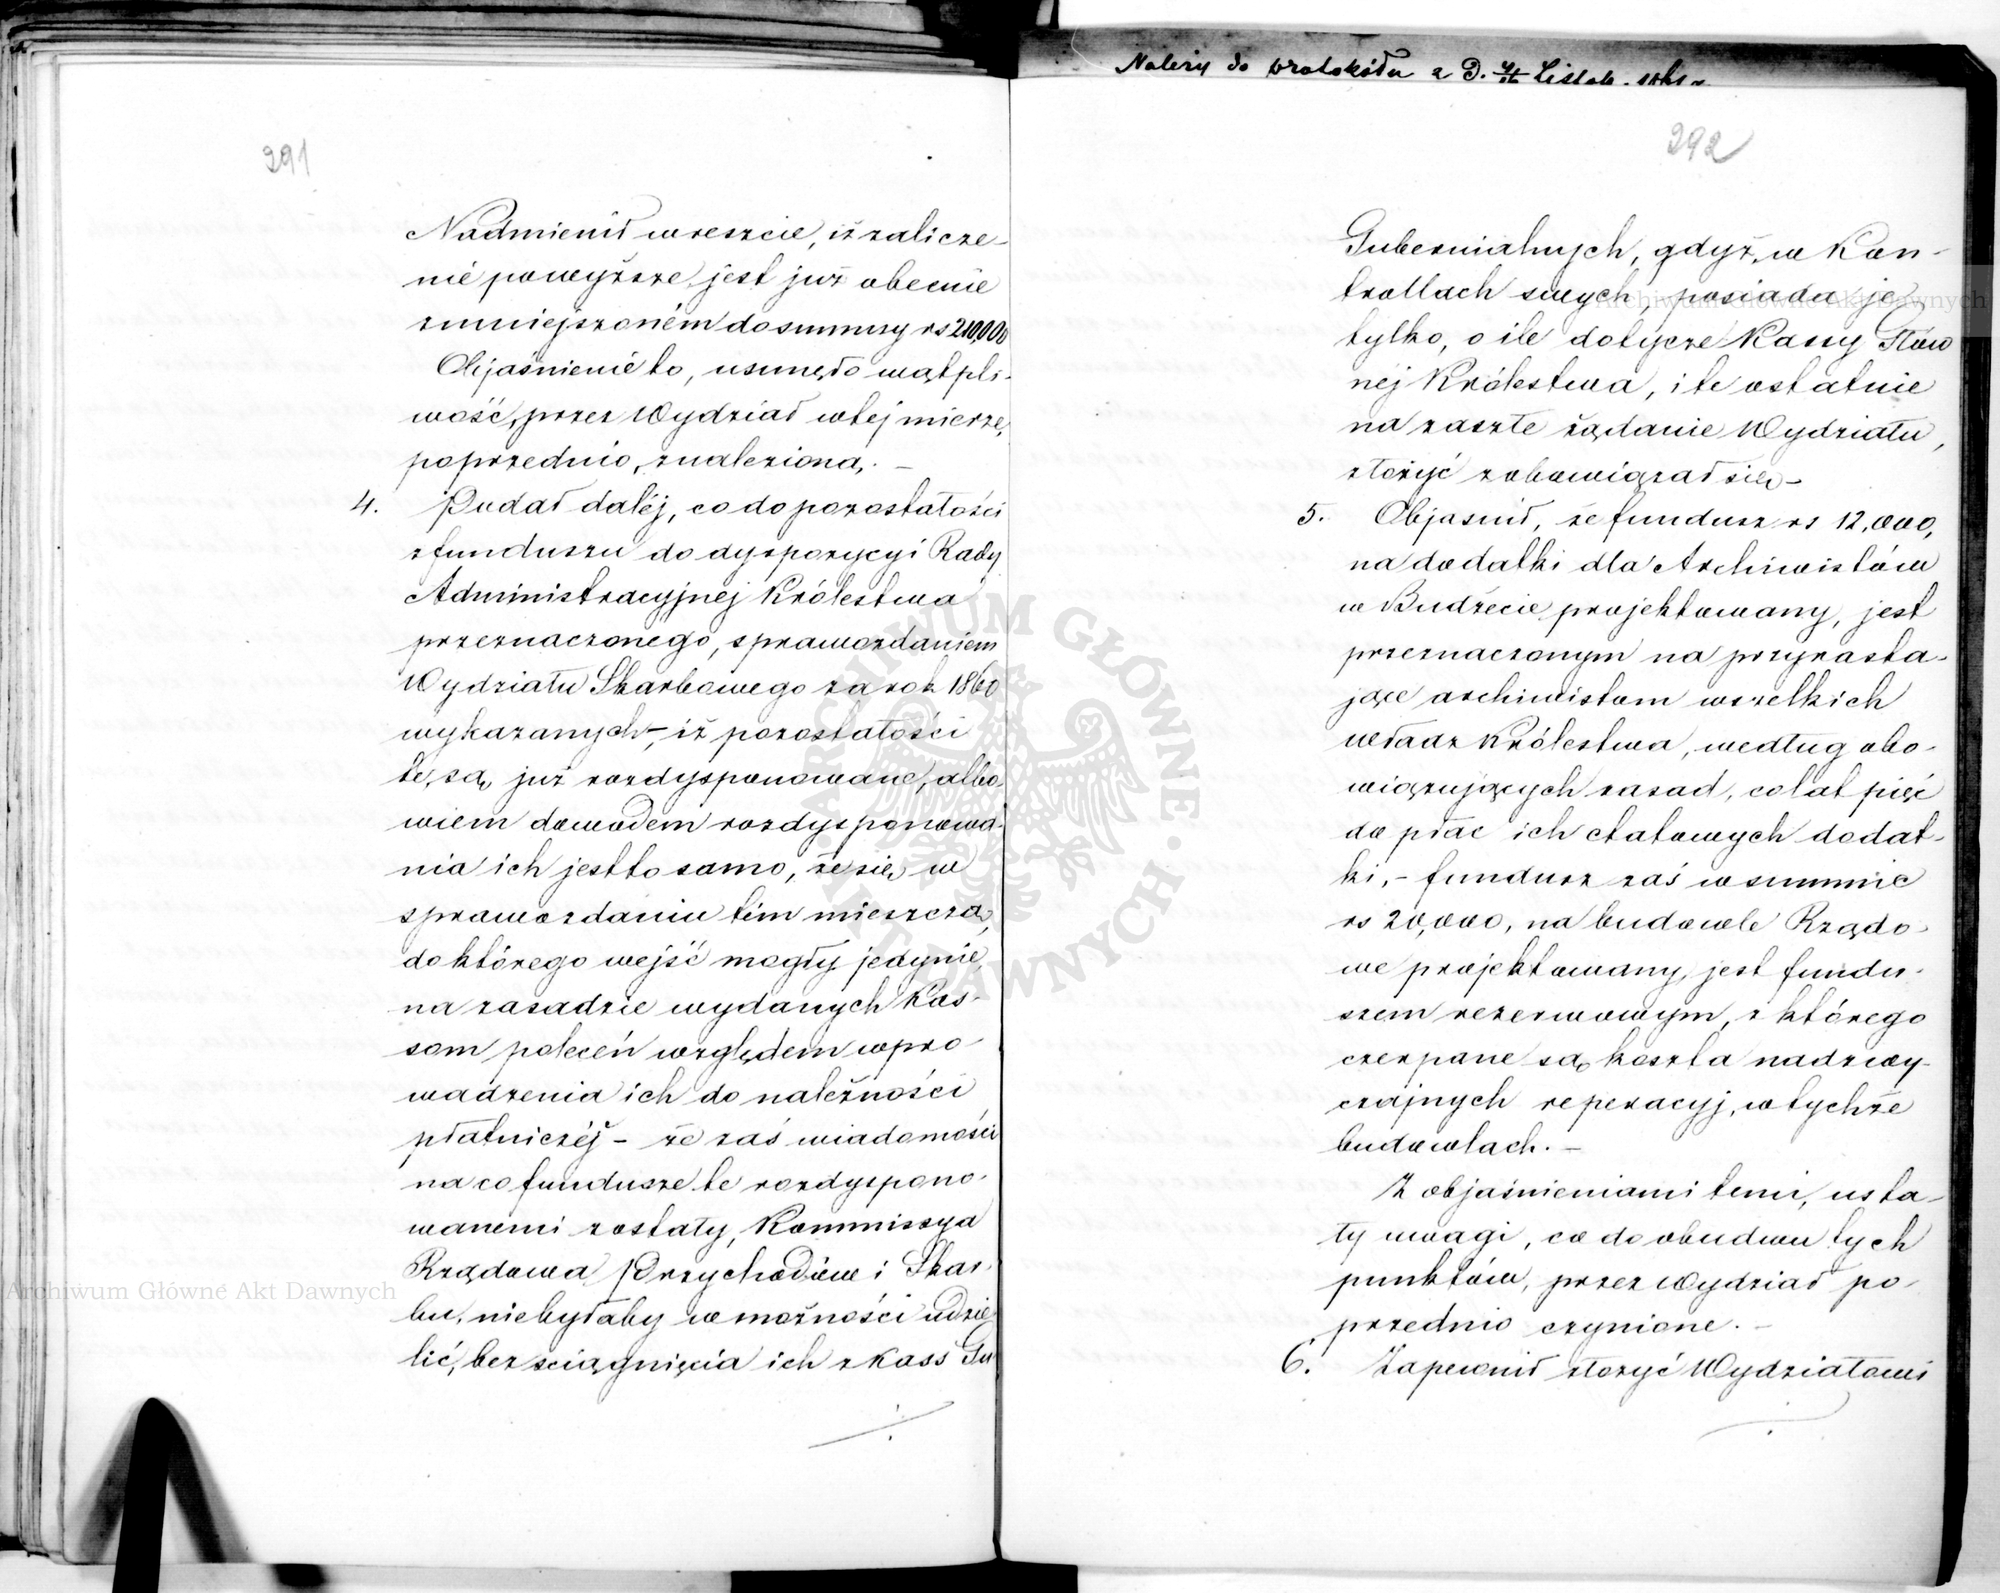 391
Nadmienił wreszcie, iż zalicze-
nie powyższe, jest już obecnie
zmniejszoném do summy rs 210,000
Objaśnienie to, usunęło wątpli-
wość, przez Wydział w tej mierze,
poprzednio, znalezioną. —
4. Podał daléj, co do pozostałości
z funduszu do dyspozycyi Rady
Administracyjnéj Królestwa
przeznaczonego, sprawozdaniem
Wydziału Skarbowego za rok 1860
wykazanych, iż pozostałości
te, są, już rozdysponowane, albo-
wiem dowodem rozdysponowa-
nia ich jest to samo, że się, w
sprawozdaniu tém mieszczą,
do którego wejść mogły jedynie,
na zasadzie wydanych Kas-
som poleceń względem wpro-
wadzenia ich do należności
płatniczéj – że zaś wiadomości
na co fundusze te rozdyspono-
wanemi zostały, Kommissya
Rządowa Przychodów i Skar-
bu, niebyłaby w możności udzie-
lić, bez sciągnięcia ich z kass Gu
Należy do protokółu z D.
392
Gubernialnych, gdyż, w Kon-
trollach swych, posiada je,
tylko, o ile dotycze Kassy Głów
néj Królestwa, i te ostatnie
na zaszłe żądanie Wydziału,
złożyć zobowiązał się –
5. Objasnił, że fundusz rs 12,000,
na dodatki dla Archiwistów
w Budżecie projektowany, jest
przeznaczonym na przyrasta-
jące archiwistom wszelkich
władz Królestwa, według obo-
wiązujących zasad, co lat pięć
do płac ich etatowych dodat-
ki, – fundusz zaś w summie
rs 20,000, na budowle Rządo-
we projektowany, jest fundu-
szem rezerwowym, z którego
czerpane są, koszta nadzwy-
czajnych reperacyj, w tychże
budowlach. –
Z objaśnieniami temi, usta-
ły uwagi, co do obudwu tych
punktów, przez Wydział po-
przednio czynione. –
6. Zapewnił złożyć Wydziałowi
Archiwum Główne Akt Dawnych
Archiwum Główne Akt Dawnych
ARCHIWUM GŁÓWNE AKT DAWNYCH